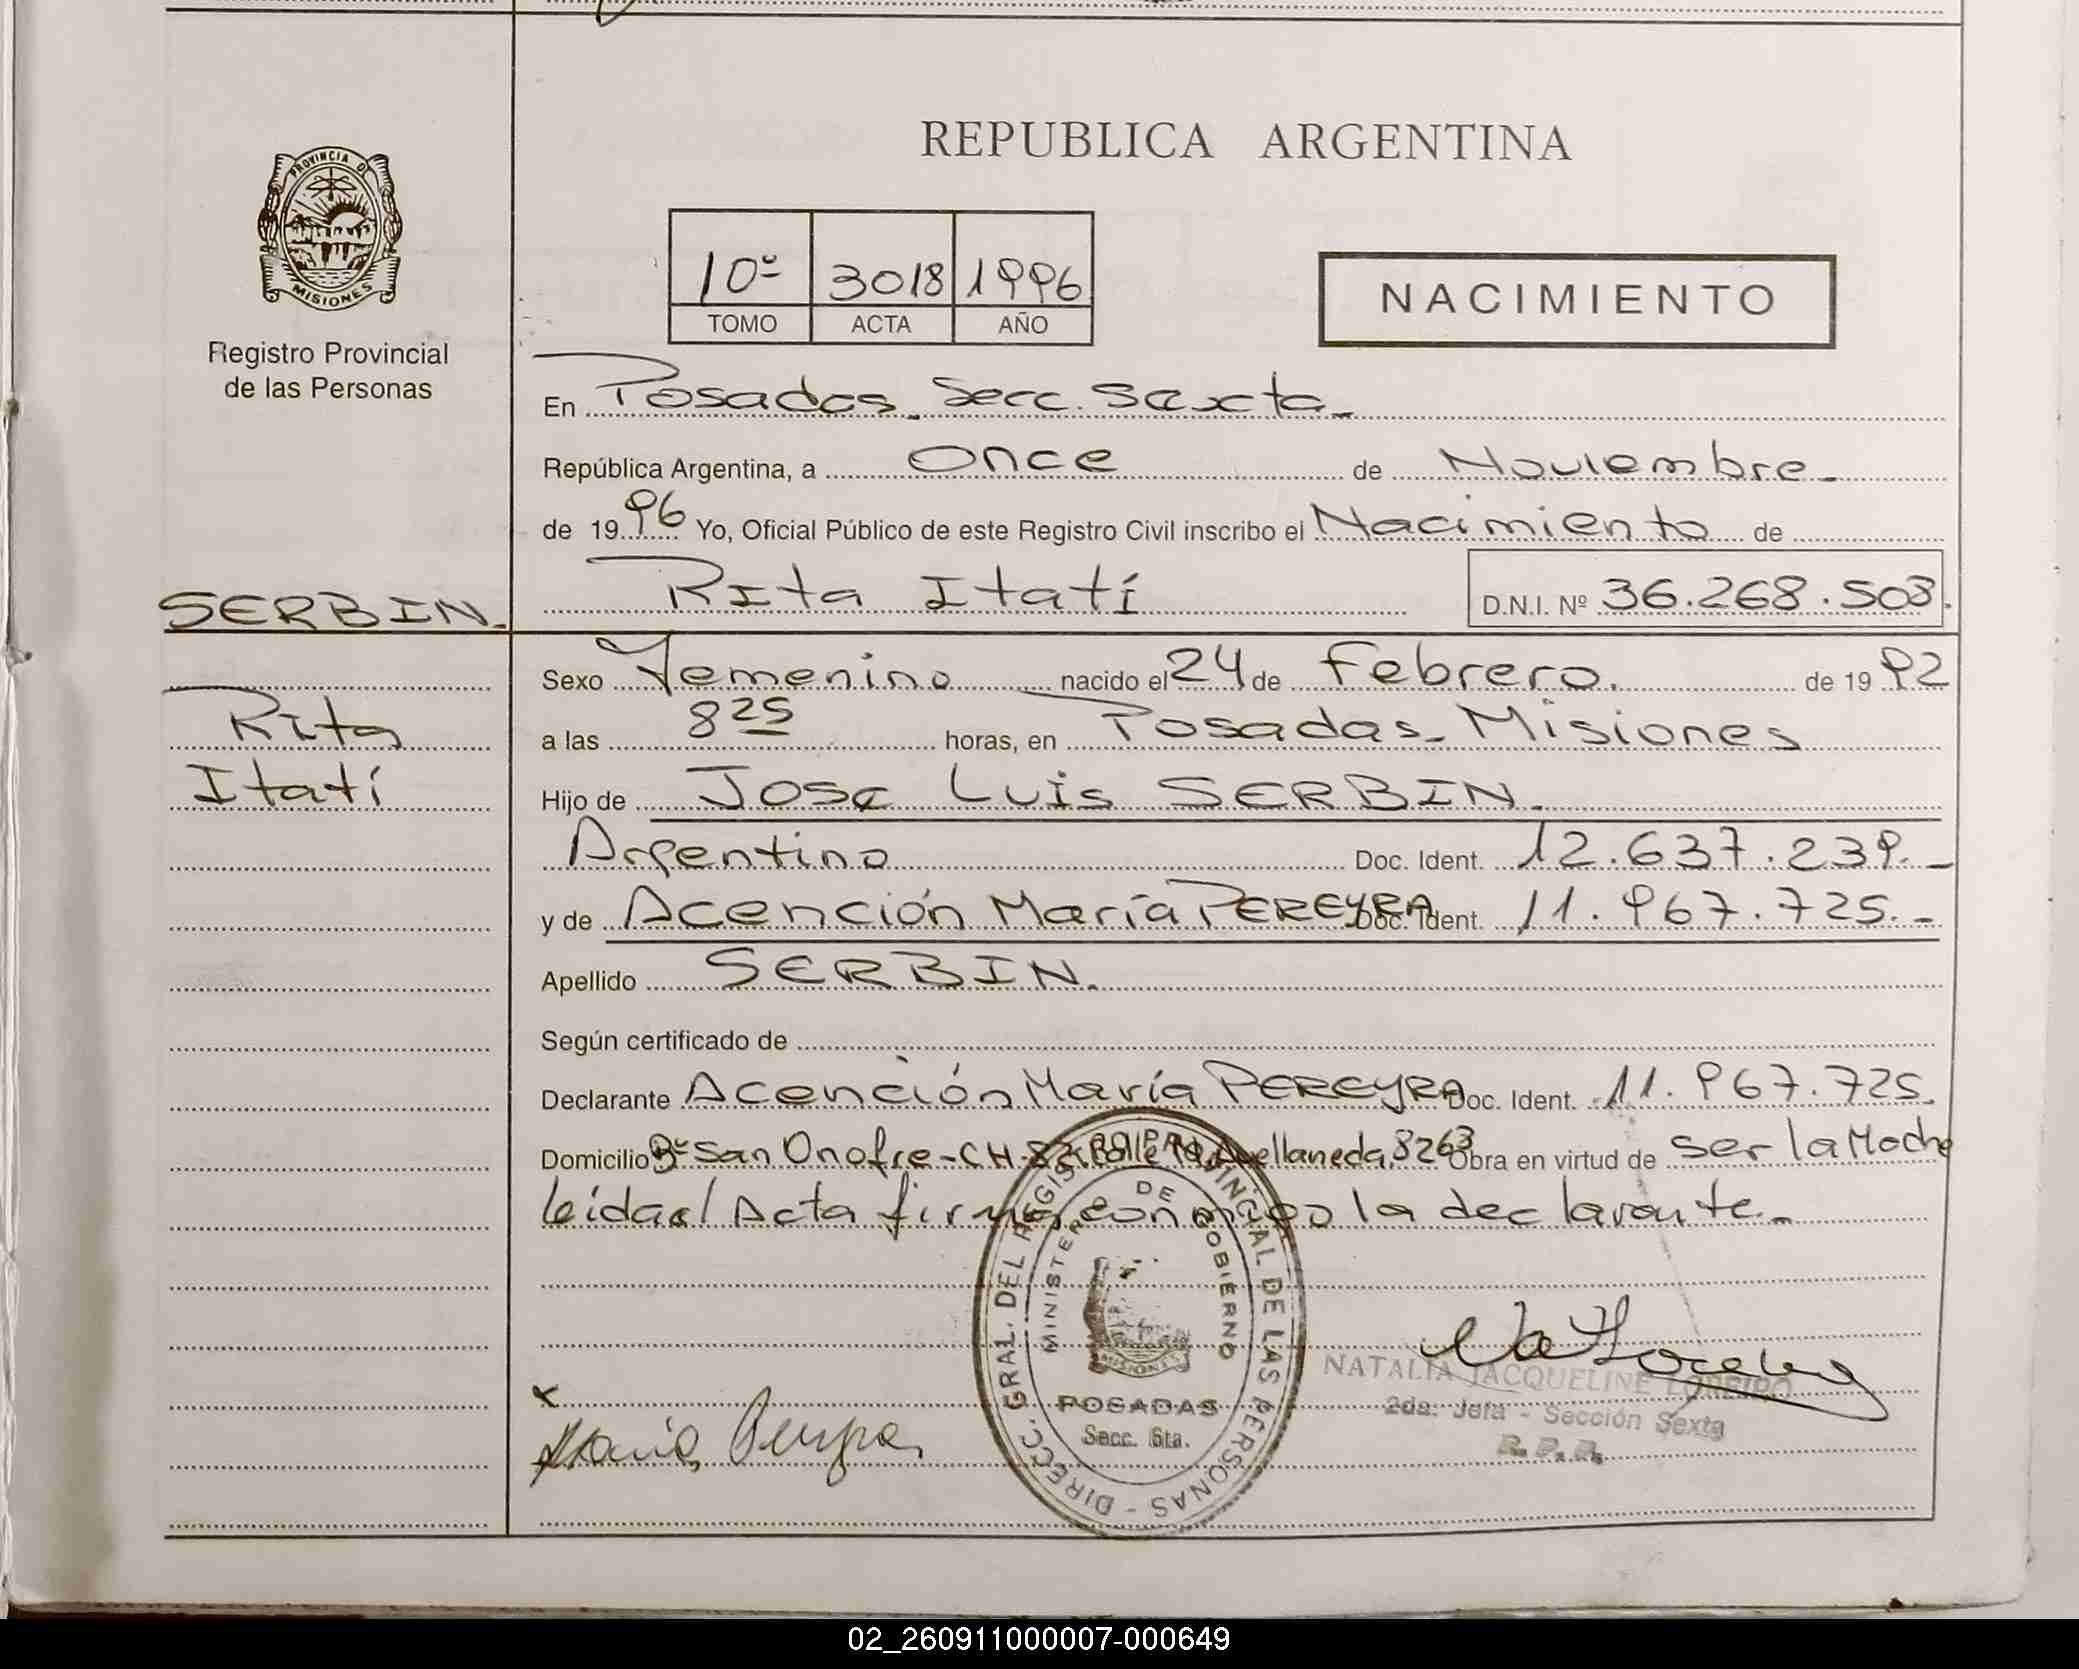 PROVINCIA DE
MISIONES
Registro Provincial
de las Personas
REPUBLICA ARGENTINA
10º 3018 1996
TOMO ACTA AÑO
NACIMIENTO
En Posadas. Secc. Sexta.
República Argentina, a Once de Noviembre.
de 1996 Yo, Oficial Público de este Registro Civil inscribo el Nacimiento de
SERBIN. Rita Itatí D.N.I. Nº 36.268.503.
Sexo Femenino nacido el 24 de Febrero. de 1992
Rita a las 8 25 horas, en Posadas. Misiones
Itatí Hijo de Jose Luis SERBIN.
Argentino Doc. Ident. 12.637.239.-
y de Acención María PEREYRA Doc. Ident. 11.967.725.-
Apellido SERBIN.
Según certificado de
Declarante Acención María PEREYRA Doc. Ident. 11.967.725.
Domicilio Bº San Onofre - CH. Avellaneda 8263 Obra en virtud de ser la Madre
leída el Acta firma con la declarante.
DIRECC. GRAL. DEL REGISTRO PROVINCIAL DE LAS PERSONAS -
MINISTERIO DE GOBIERNO
MISIONES
POSADAS
Secc. 6ta.
NATALIA JACQUELINE LOREIRO
2da. Jefa - Sección Sexta
R. P. P.
x
02_260911000007-000649